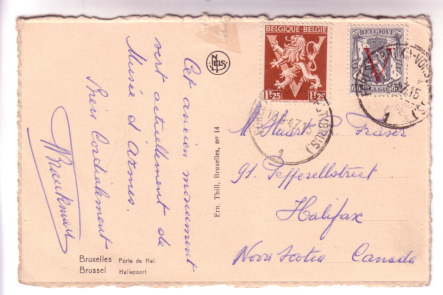 Cet ancien monument
sert actuellement de
Musée d'armes.
Très Cordialement
Bruxelles Porte de Hal
Brussel Hallepoort
Ern. Thill, Bruxelles, № 14
NELS
BELGIQUE-BELGIE
1F25 1F25
BELGIQUE
V
M. Stuart Fraser
91. Pefferellstreet
Halifax
Nova Scotia Canada